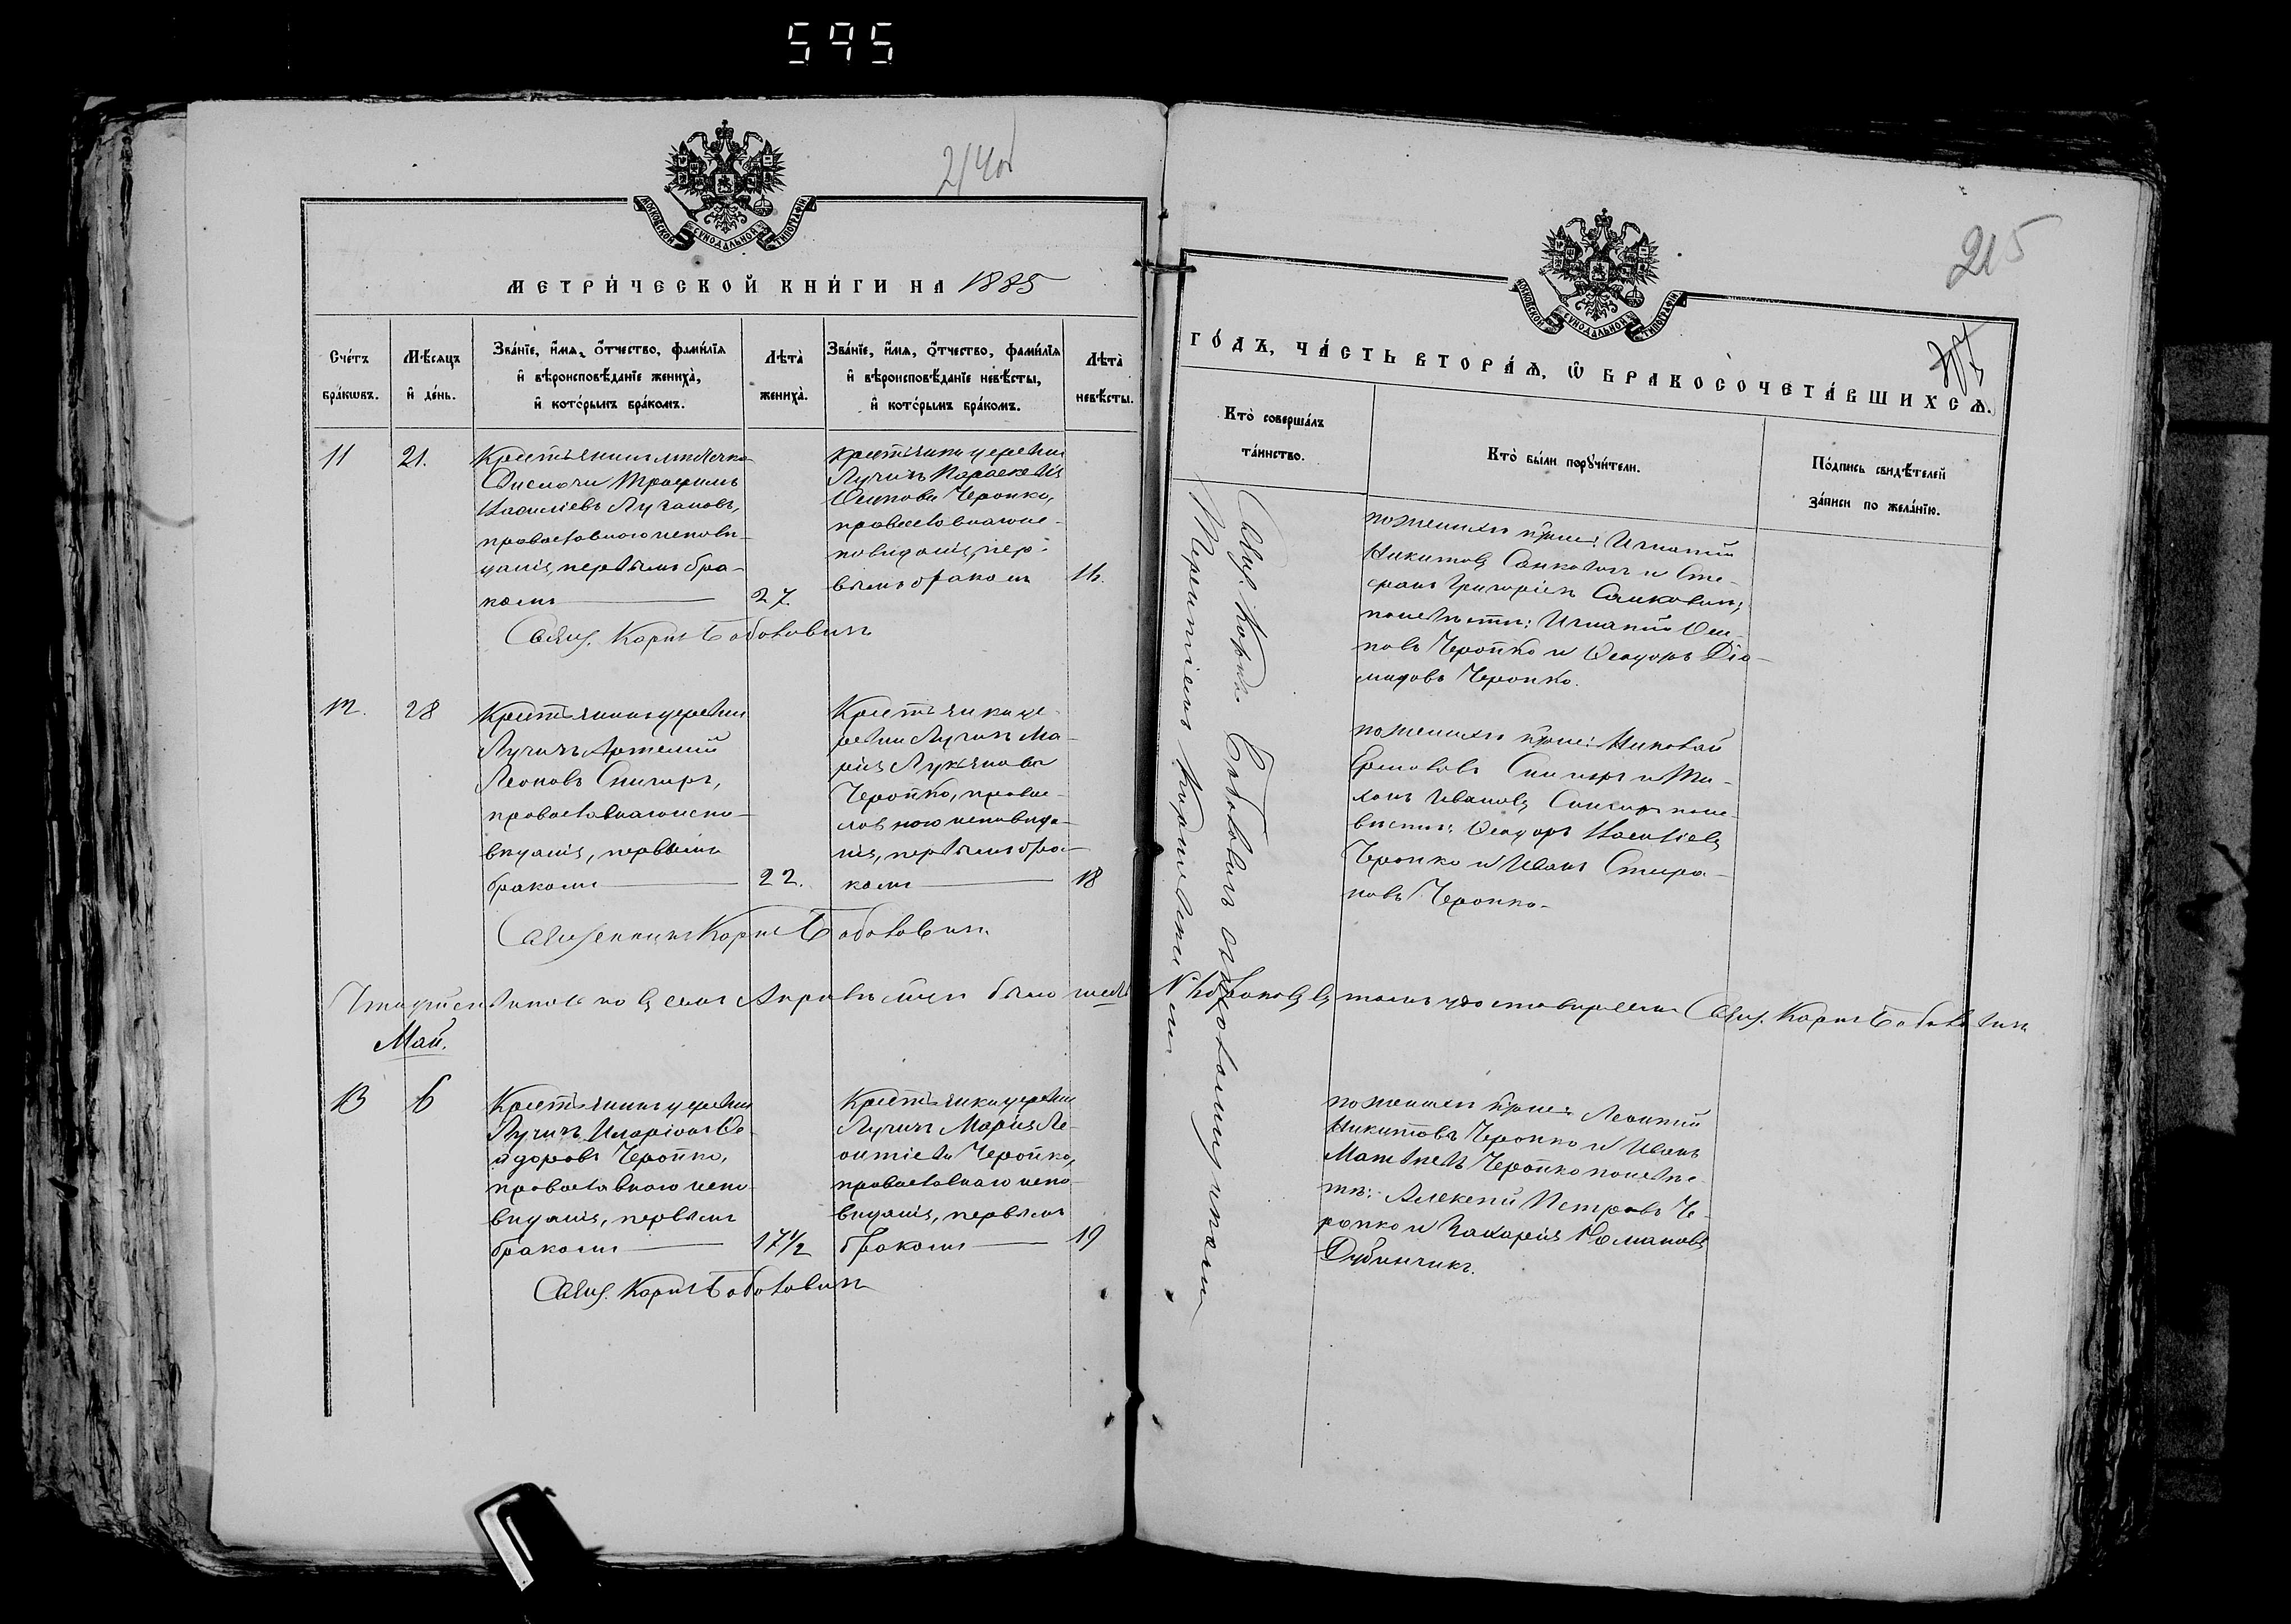 595
214об
МОСКОВСКОЙ СѴНОДАЛЬНОЙ ТИПОГРАФІИ
МЕТРИ́ЧЕСКОЙ КНИ́ГИ НА 1885
Сче́тъ бра́кωвъ.
Мѣ́сяцъ и҆ де́нь.
Зва́нїе, и҆́мѧ, ѻ҆́тчество, фами́лїѧ и҆ вѣроисповѣ́данїе жениха̀, и҆ кото́рымъ бра́комъ.
Лѣта̀ жениха̀.
Зва́нїе, и҆́мѧ, ѻ҆́тчество, фами́лїѧ и҆ вѣроисповѣ́данїе невѣ́сты, и҆ кото́рымъ бра́комъ.
Лѣта̀ невѣ́сты.
11
21.
Крестьянинъ мѣстечка
Свислочи Трофимъ
Василіевъ Лугановъ,
православного исповѣ-
данія, первымъ бра-
комъ
27.
крестьянка деревни
Лучинъ Параскевія
Осипова Черопко,
православнаго ис-
повѣданія, пер-
вымъ бракомъ
16.
Свящ. Корнил Боболовичъ
12.
28
Крестьянинъ деревни
Лучинъ Артемій
Леоновъ Снигиръ,
православнаго испо-
вѣданія, первымъ
бракомъ
22.
Крестьянка де-
ревни Лучинъ Ма-
рія Лукьянова
Черопко, правос-
лавного исповѣда-
нія, первымъ бра-
комъ
18
Священникъ Корнил Боболовичъ
Май.
13
6
Крестьянинъ деревни
Лучинъ Иларіонъ Ѳе-
одоровъ Черопко,
православного испо-
вѣданія, первымъ
бракомъ
17½
Крестьянка деревни
Лучинъ Марія Ле-
онтіева Черопко,
православнаго испо-
вѣданія, первымъ
бракомъ
19
Свящ. Корнил Боболовичъ
215
МОСКОВСКОЙ СѴНОДАЛЬНОЙ ТИПОГРАФІИ
ГО́ДЪ, ЧА́СТЬ ВТОРА́Ѧ, Ѽ БРАКОСОЧЕТА́ВШИХСѦ.
Кто̀ соверша́лъ та́инство.
Кто̀ бы́ли порꙋчи́тели.
По́дпись свидѣ́телей за́писи по жела́нїю.
Свящ. Корнил Боболовичъ съ псаломщикомъ
Терентіемъ
по женихѣ крест: Игнатій
Никитовъ Санковичъ и Сте-
фанъ Григоріевъ Санковичъ;
по невѣстѣ: Игнатій Оси-
повъ Черопко и Ѳеодоръ Діо-
мидовъ Черопко.
по женихѣ крест: Николай
Ермоловъ Снигиръ и Ти-
хонъ Ивановъ Снигиръ по не-
вѣстѣ: Ѳеодоръ Василіевъ
Черопко и Иванъ Спиридо-
новъ Черопко.
по женихѣ крест: Леонтій
Никитовъ Черопко и Иванъ
Матвѣевъ Черопко по невѣс-
тѣ: Алексѣй Петровъ Че-
ропко и Захарія Романовъ
Дубинчикъ.